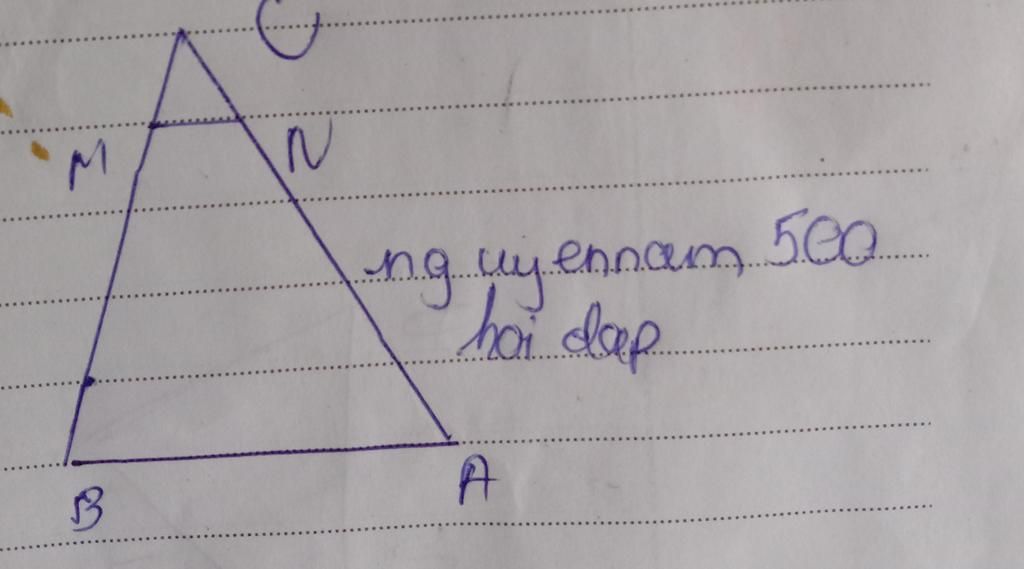 C
M N
nguyennam 500
hoi dap
B A